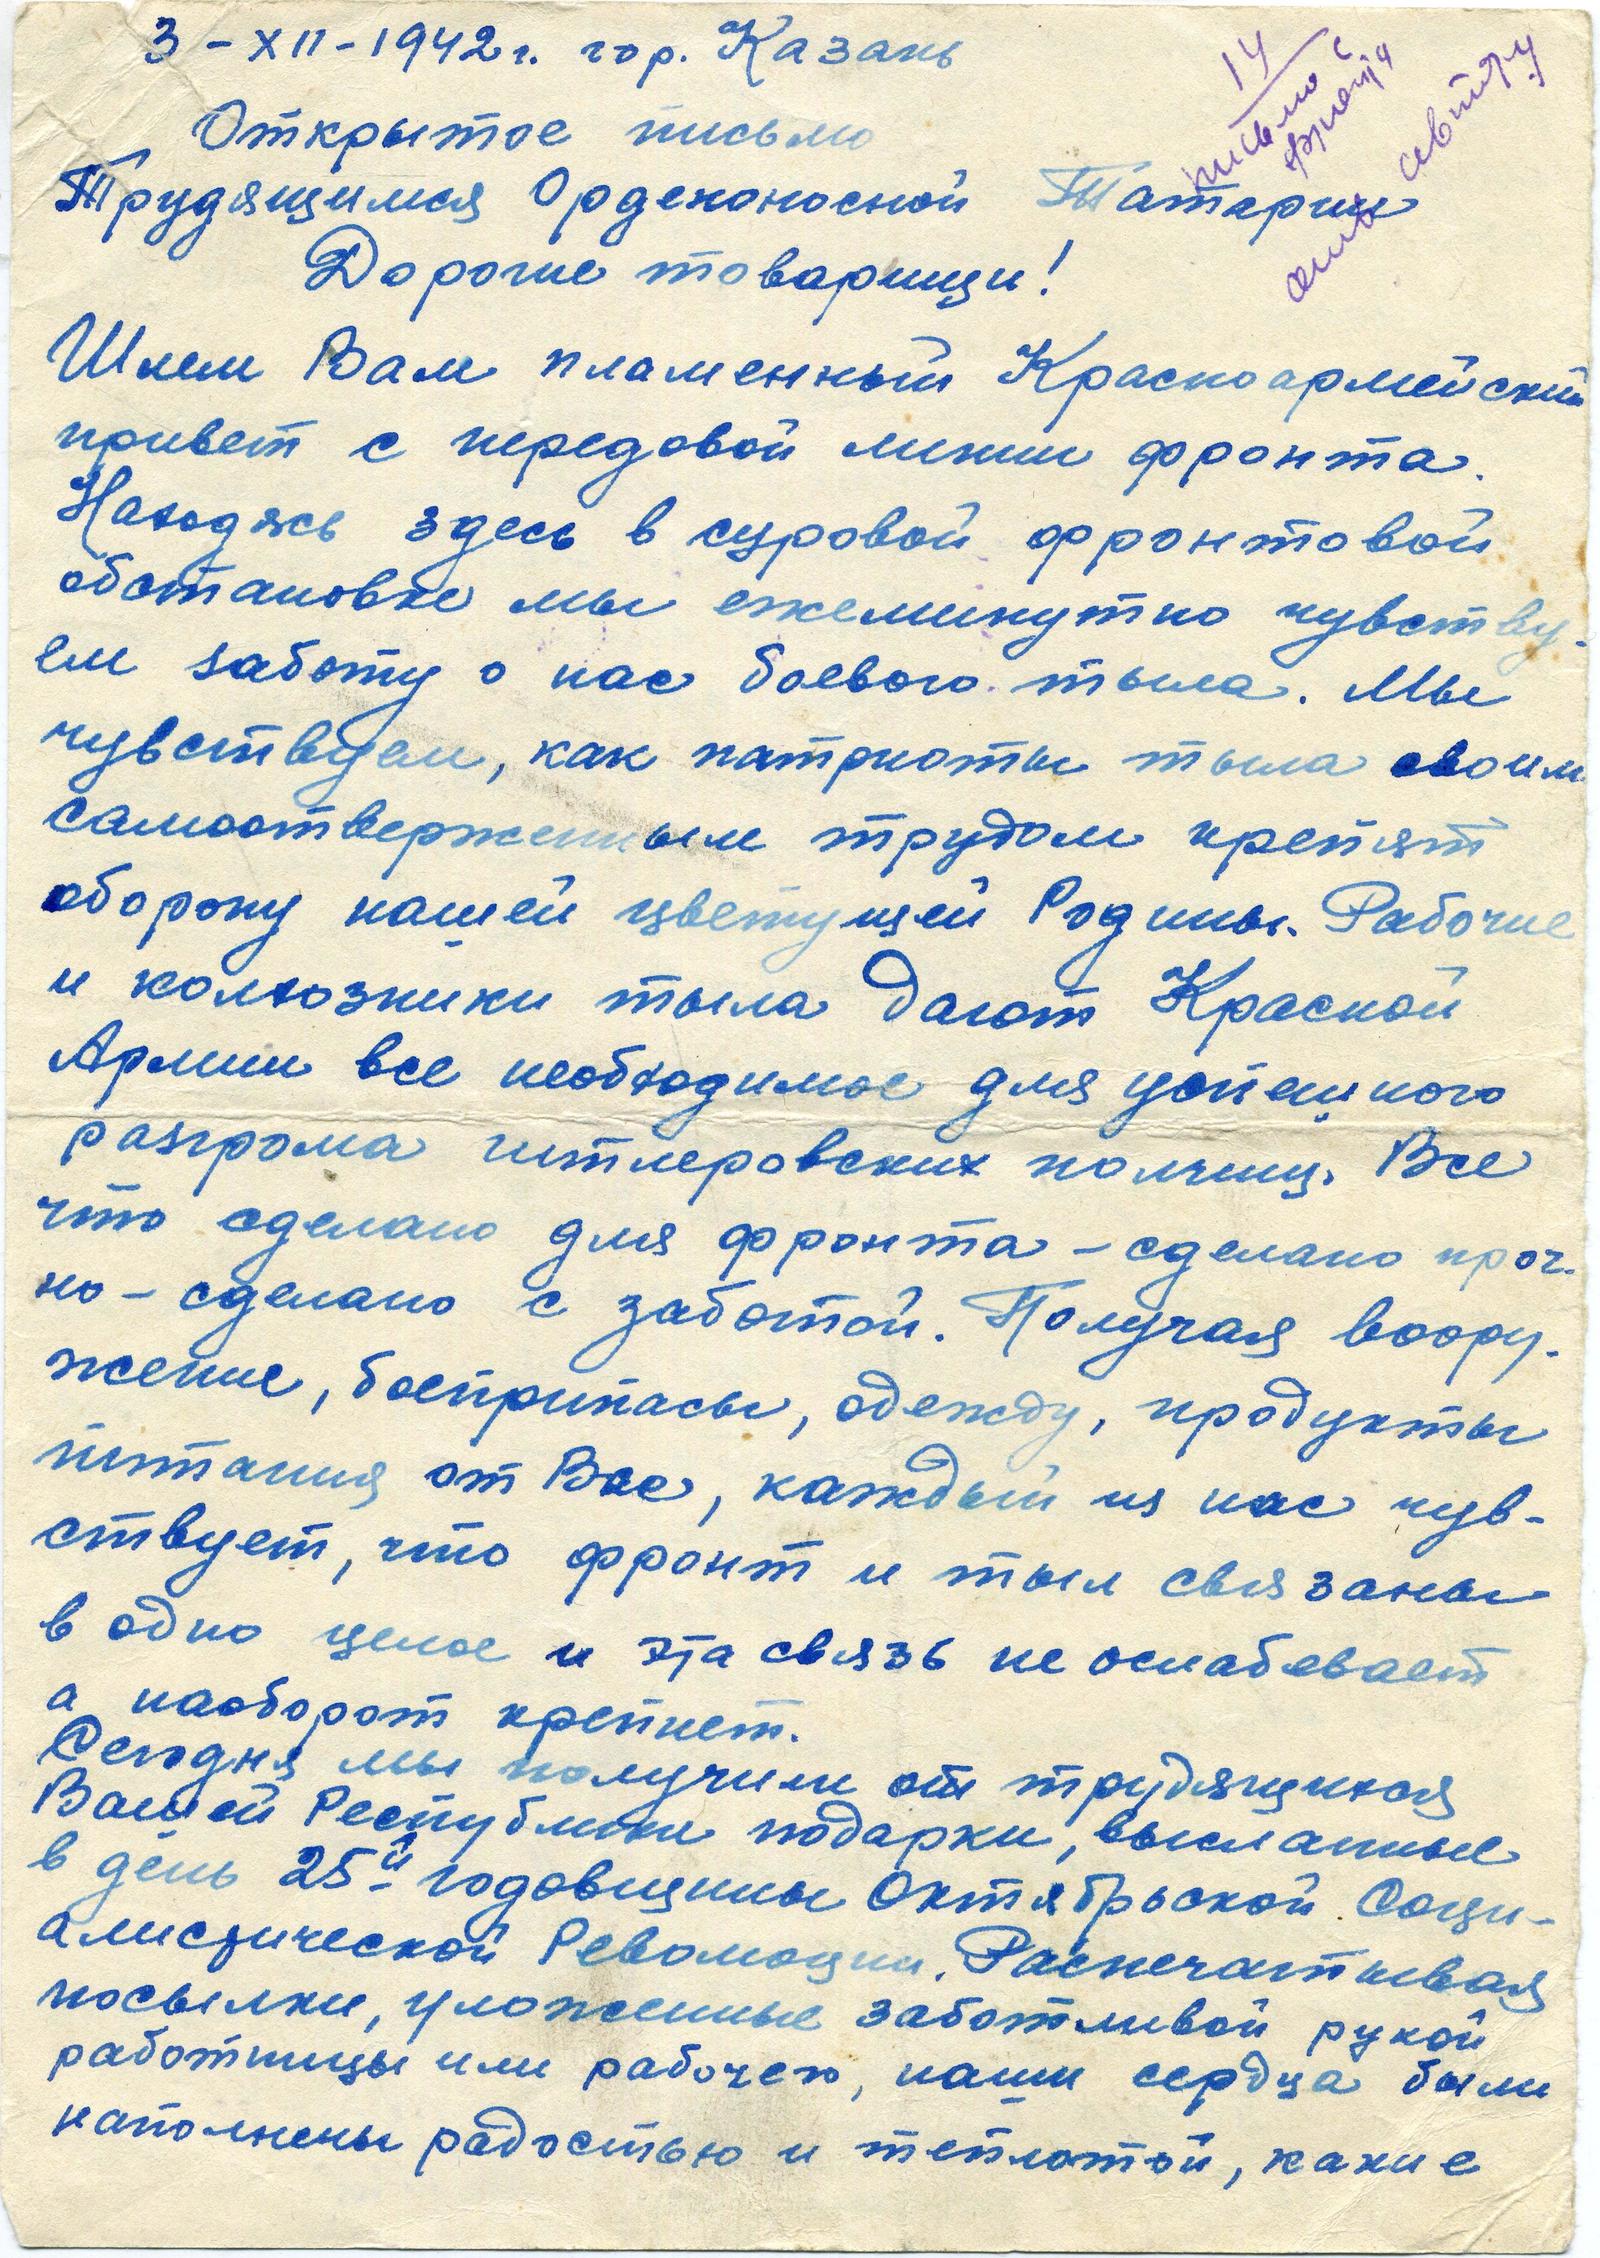 3-XII-1942 г. гор. Казань
14
письмо с
фронта
Открытое письмо
Трудящимся Орденоносной Татарии
Дорогие товарищи!
Шлем Вам пламенный Красноармейский
привет с передовой линии фронта.
Находясь здесь в суровой фронтовой
обстановке мы ежеминутно чувству-
ем заботу о нас боевого тыла. Мы
чувствуем, как патриоты тыла своим
самоотверженным трудом крепят
оборону нашей цветущей Родины. Рабочие
и колхозники тыла дают Красной
Армии все необходимое для успешного
разгрома гитлеровских полчищ. Все
что сделано для фронта – сделано проч-
но – сделано с заботой. Получая воору-
жение, боеприпасы, одежду, продукты
питания от Вас, каждый из нас чув-
ствует, что фронт и тыл связаны
в одно целое и эта связь не ослабевает
а наоборот крепнет.
Сегодня мы получили от трудящихся
Вашей Республики подарки, высланные
в день 25-й годовщины Октябрьской Соци-
алистической Революции. Распечатывая
посылки, уложенные заботливой рукой
работницы или рабочего, наши сердца были
наполнены радостью и теплотой, какие